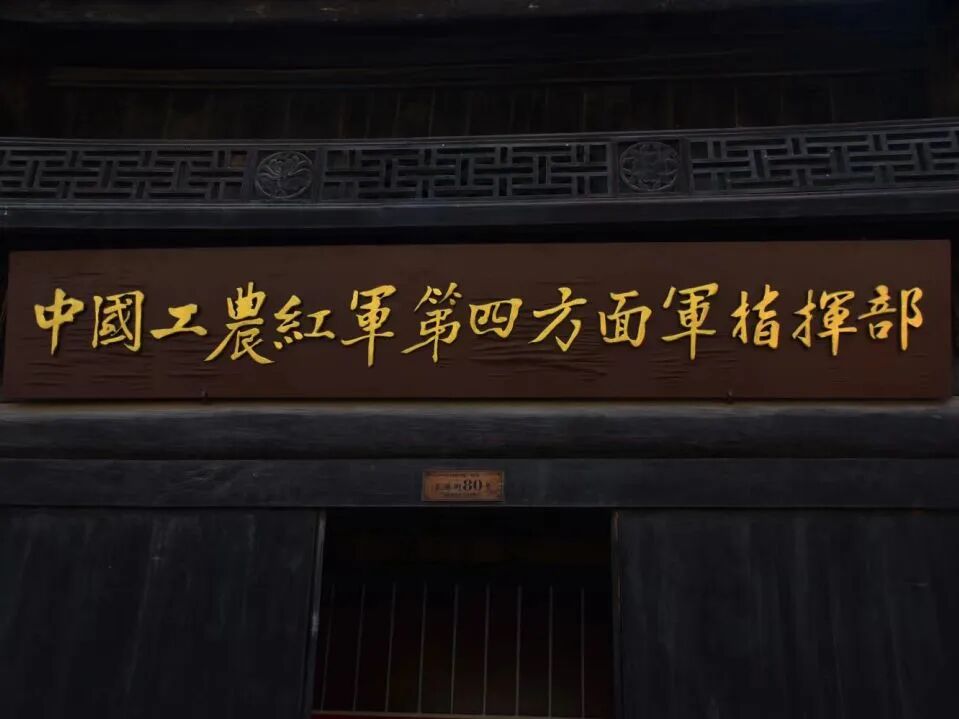 中國工農紅軍第四方面軍指揮部
80